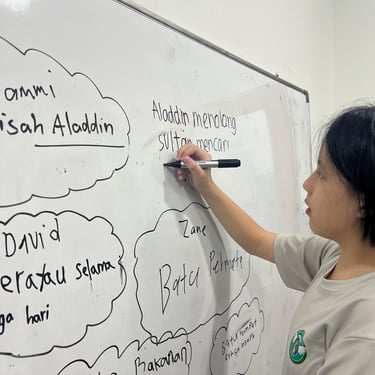 ammi
isah Aladdin
Aladdin menolong
sultan mencari
DAViD
eratau selama
ga hari
Zane
Batu Permata
Bakanan